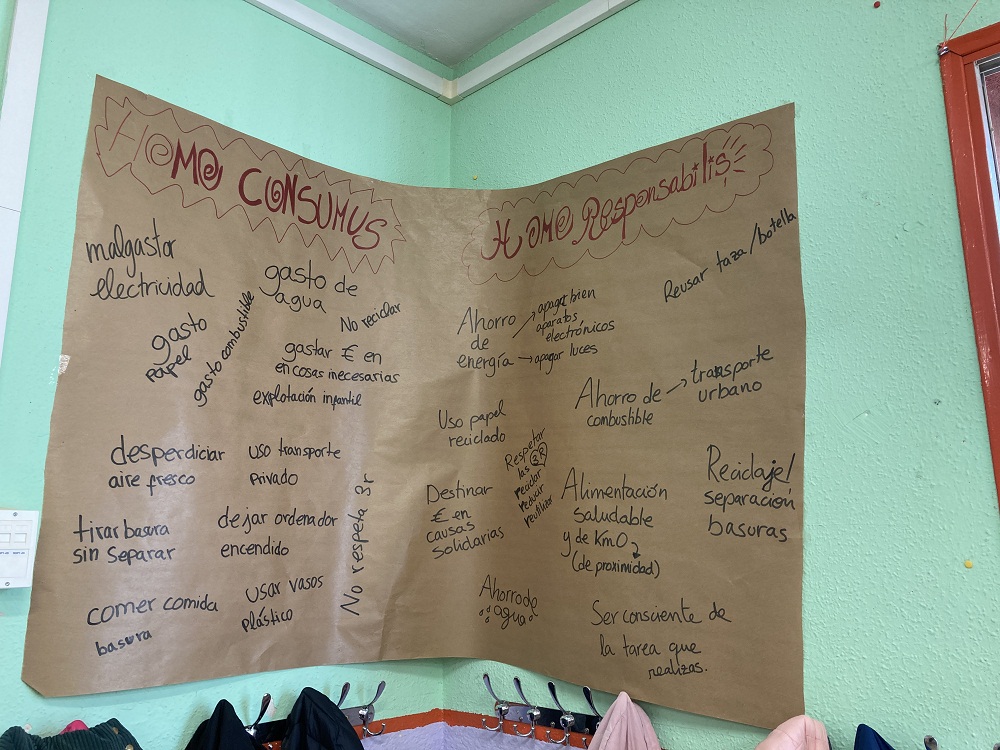 HOMO CONSUMUS
malgastar
electricidad
gasto de
agua
No reciclar
gasto
papel
gasto combustible
gastar € en
en cosas inecesarias
explotación infantil
desperdiciar
aire fresco
uso transporte
privado
tirar basura
sin separar
dejar ordenador
encendido
No respeta 3r
comer comida
basura
usar vasos
plástico
HOMO Responsabilis
Reusar taza/botella
Ahorro
de
energía
→ apagar bien
aparatos
electrónicos
→ apagar luces
Ahorro de
combustible
→ transporte
urbano
Uso papel
reciclado
Respetar
las 3R
reciclar
reducir
reutilizar
Destinar
€ en
causas
solidarias
Alimentación
saludable
y de Km0
(de proximidad)
Reciclaje/
separación
basuras
Ahorro de
agua
Ser consciente de
la tarea que
realizas.